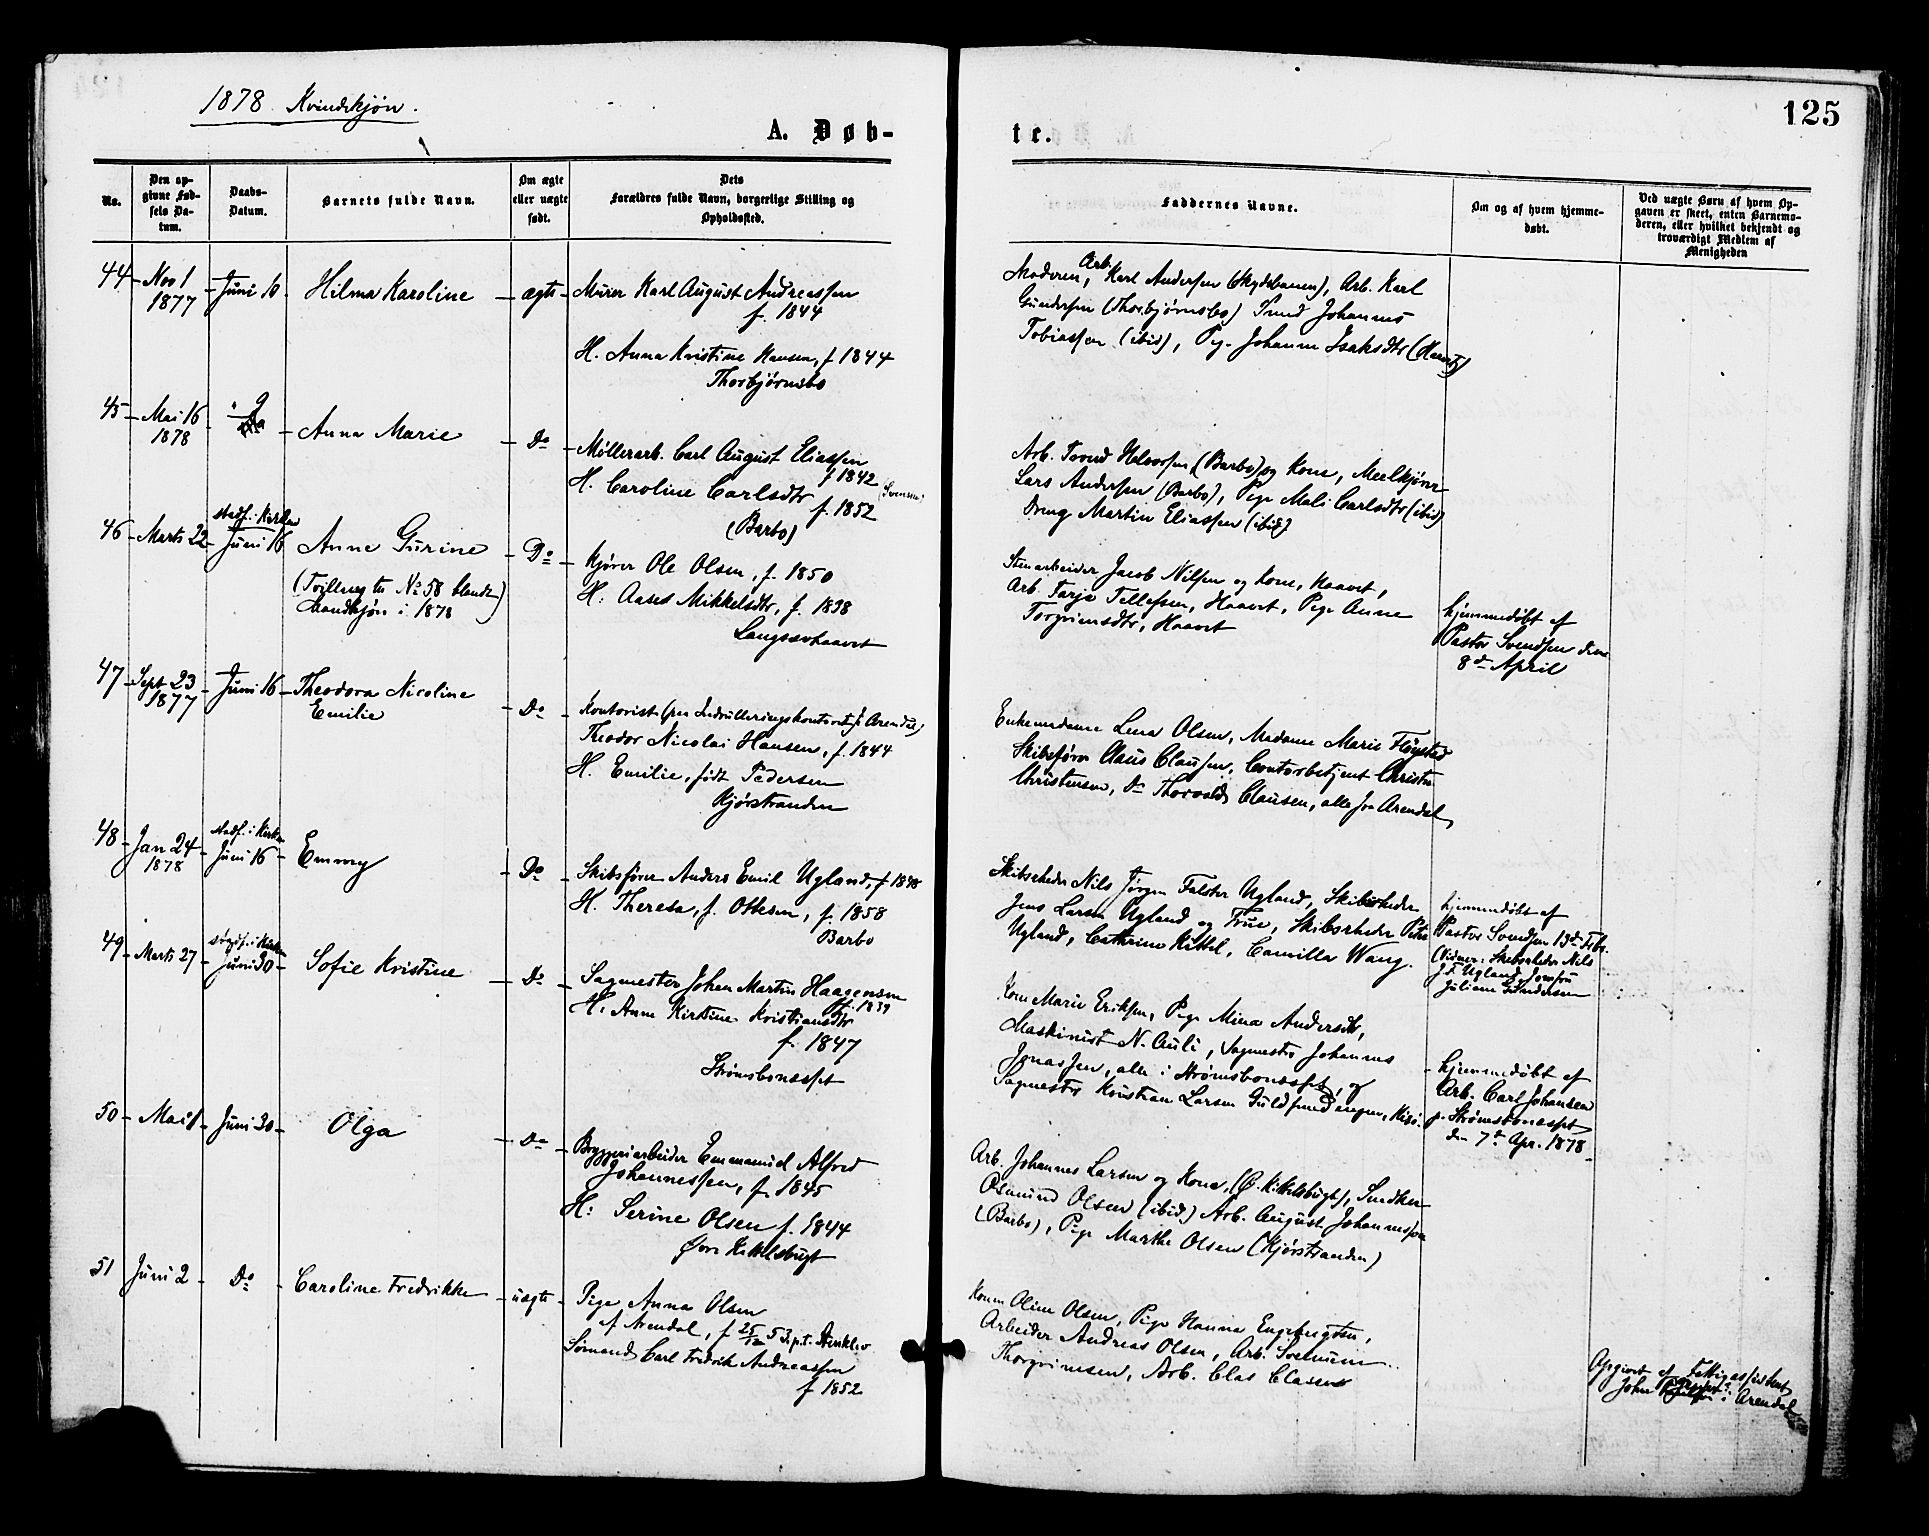 1878 Kvindekjøn.
A. Døb-
te.
125
No.
Den op-
givne Fød-
sels Da-
tum.
Daabs-
Datum.
Barnets fulde Navn.
Om ægte
eller uægte
født.
Dets
Forældres fulde Navn, borgerlige Stilling og
Opholdssted.
Faddernes Navne.
Om og af hvem hjemme-
døbt.
Ved uægte Børn af hvem Op-
gaven er skeet, enten Barnemo-
deren, eller hvilket bekjendt og
troværdigt Medlem af
Menigheden
44 Nov 1
1877
Juni 10
Hilma Karoline
ægte
Murer Karl August Andreassen
f. 1844
H. Anna Kristine Hansen, f. 1844
Thorbjørnsbo
Moderen, Arb. Karl Andersen (Skydebanen), Arb. Karl
Gundersen (Thorbjørnsbo) Smed Johannes
Tobiassen (ibid), Pige Johanne Isaksdtr
45 Mai 16
1878
" 9
Anna Marie
Do
Møllerarb. Carl August Eliassen
f 1842
H. Caroline Carlsdtr
f. 1852
(Barbo)
Arb. Halvorsen (Barbo) og Kone,
Lars Andersen (Barbo), Pige Mali Carlsdtr (ibid)
Dreng Martin Eliassen (ibid)
46 Marts 22
stadf. i Kirken
Juni 16
Anne Gurine
(Tvilling til No 58 blandt
Mandkjøn i 1878)
Do
Kjører Ole Olsen, f. 1850
H: Aase Mikkelsdtr, f. 1838
Langsævhaavet
Stenarbeider Jacob Nilsen og Kone, Haavet,
Arb. Tarje Tellefsen, Haavet, Pige Anne
Torgrimsdtr, Haavet
hjemmedøbt af
Pastor Svendsen den
8de April
47 Sept 23
1877
Juni 16
Theodora Nicoline
Emilie
Do
Kontorist (paa Indrulleringskontoret i Arendal)
Theodor Nicolai Hansen, f. 1844
H. Emilie, født Pedersen
Kjørstranden
Enkemadame Lena Olsen, Madame Marie Fløystad
Skibsfører Claus Clausen, Contorbetjent Christen
Christensen, Do Thorvald Clausen, alle fra Arendal
48 Jan 24
1878
stadf. i Kirken
Juni 16
Emmy
Do
Skibsfører Anders Emil Ugland, f 1848
H. Theresa, f. Ottesen, f. 1858
Barbo
Skibsrheder Nils Jørgen Falster Ugland, Skibsrheder
Jens Larsen Ugland og Frue, Skibsrheder Peter
Ugland, Cathrine Kittel, Camilla Wang.
hjemmedøbt af
Pastor Svendsen 13de Febr.
(Vidner: Skibsrheder Nils
J. F. Ugland, Jomfru
Juliane Gundersen
49 Marts 27
stadf. i Kirken
Juni 30
Sofie Kristine
Do
Sagmester Johan Martin Haagensen
f. 1839
H: Anne Kirstine Kristiansdtr
f. 1847
Strømsbonæsset
Kone Marie Eriksen, Pige Mina Andersdtr,
Maskinist N. Auli, Sagmester Johannes
Jonassen, alle i Strømsbonæsset, og
Sagmester Kristian Larsen
hjemmedøbt af
Arb. Carl Johansen
p. Strømsbonæsset
den 7de Apr. 1878
50 Mai 1
Juni 30
Olga
Do
Bryggeriarbeider Emmanuel Alfred
Johannessen, f. 1845
H: Serine Olsen f. 1844
Øvre Kittelsbugt
Arb. Johannes Larsen og Kone, (Ø. Kittelsbugt), Smed
Osmund Olsen (ibid.) Arb. August Johannessen
(Barbo), Pige Marthe Olsen (Kjørstranden)
51 Juni 2
Do
Caroline Fredrikke
uægte
Pige Anna Olsen
af Arendal, f 25/12 53, p.t.
Sømand Carl Fredrik Andreassen
f 1852
Konen Oline Olsen, Pige Hanna Engebrigtsen,
Arbeider Andreas Olsen, Arb.
Thorgrimsen, Arb. Clas Classen
Opgivet af Fattigassistent
John i Arendal